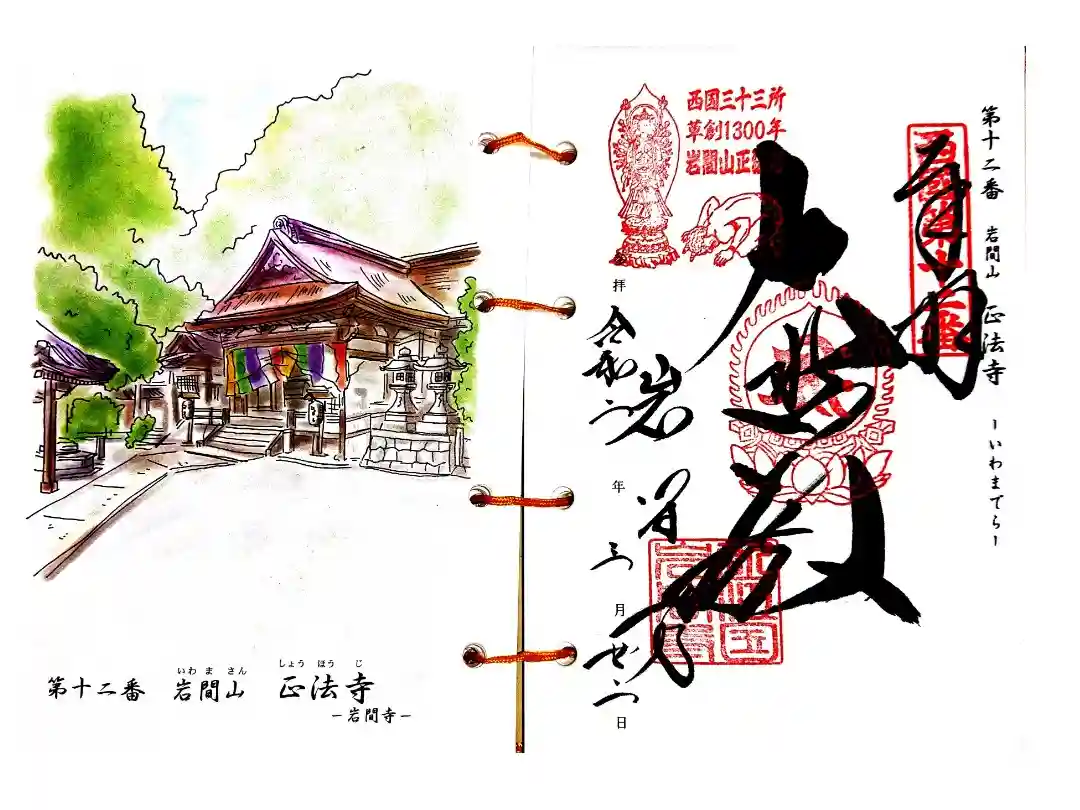 いわ ま さん しょう ほう じ
第十二番 岩間山 正法寺
－岩間寺－
第十二番 岩間山 正法寺 －いわまてら－
西國第十二番
大悲殿
西国三十三所
草創1300年
岩間山正
岩間寺
拝 令和二年三月廿二日